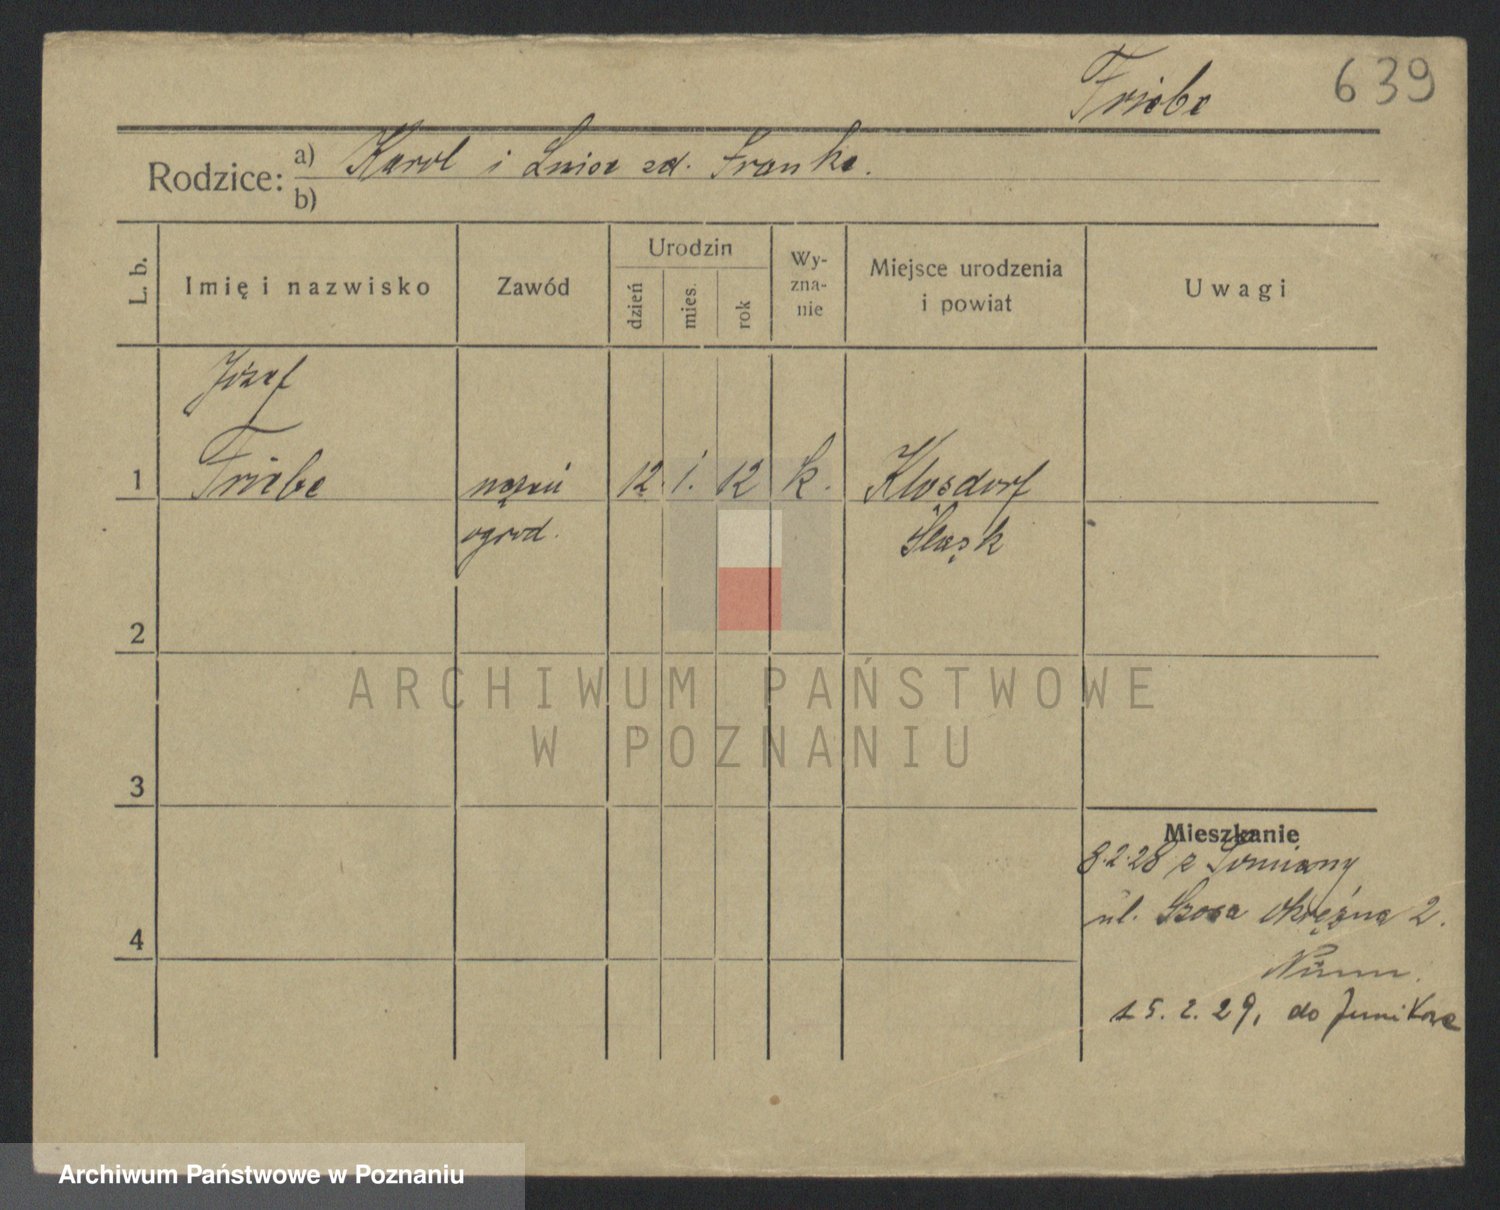 Friebe 639
Rodzice: a) Karol i Luise zd. Franke.
b)
L. b.
Imię i nazwisko
Zawód
Urodzin
dzień
mies.
rok
Wy-
zna-
nie
Miejsce urodzenia
i powiat
Uwagi
Józef
1 Friebe uczeń 12. 1. 12 k. Klosdorf
ogrod. Śląsk
2
ARCHIWUM PAŃSTWOWE
W POZNANIU
3
Mieszkanie
8.2.28 z
ul. Szosa Okrężna 2.
4
15. 2. 29, do Junikowa
Archiwum Państwowe w Poznaniu